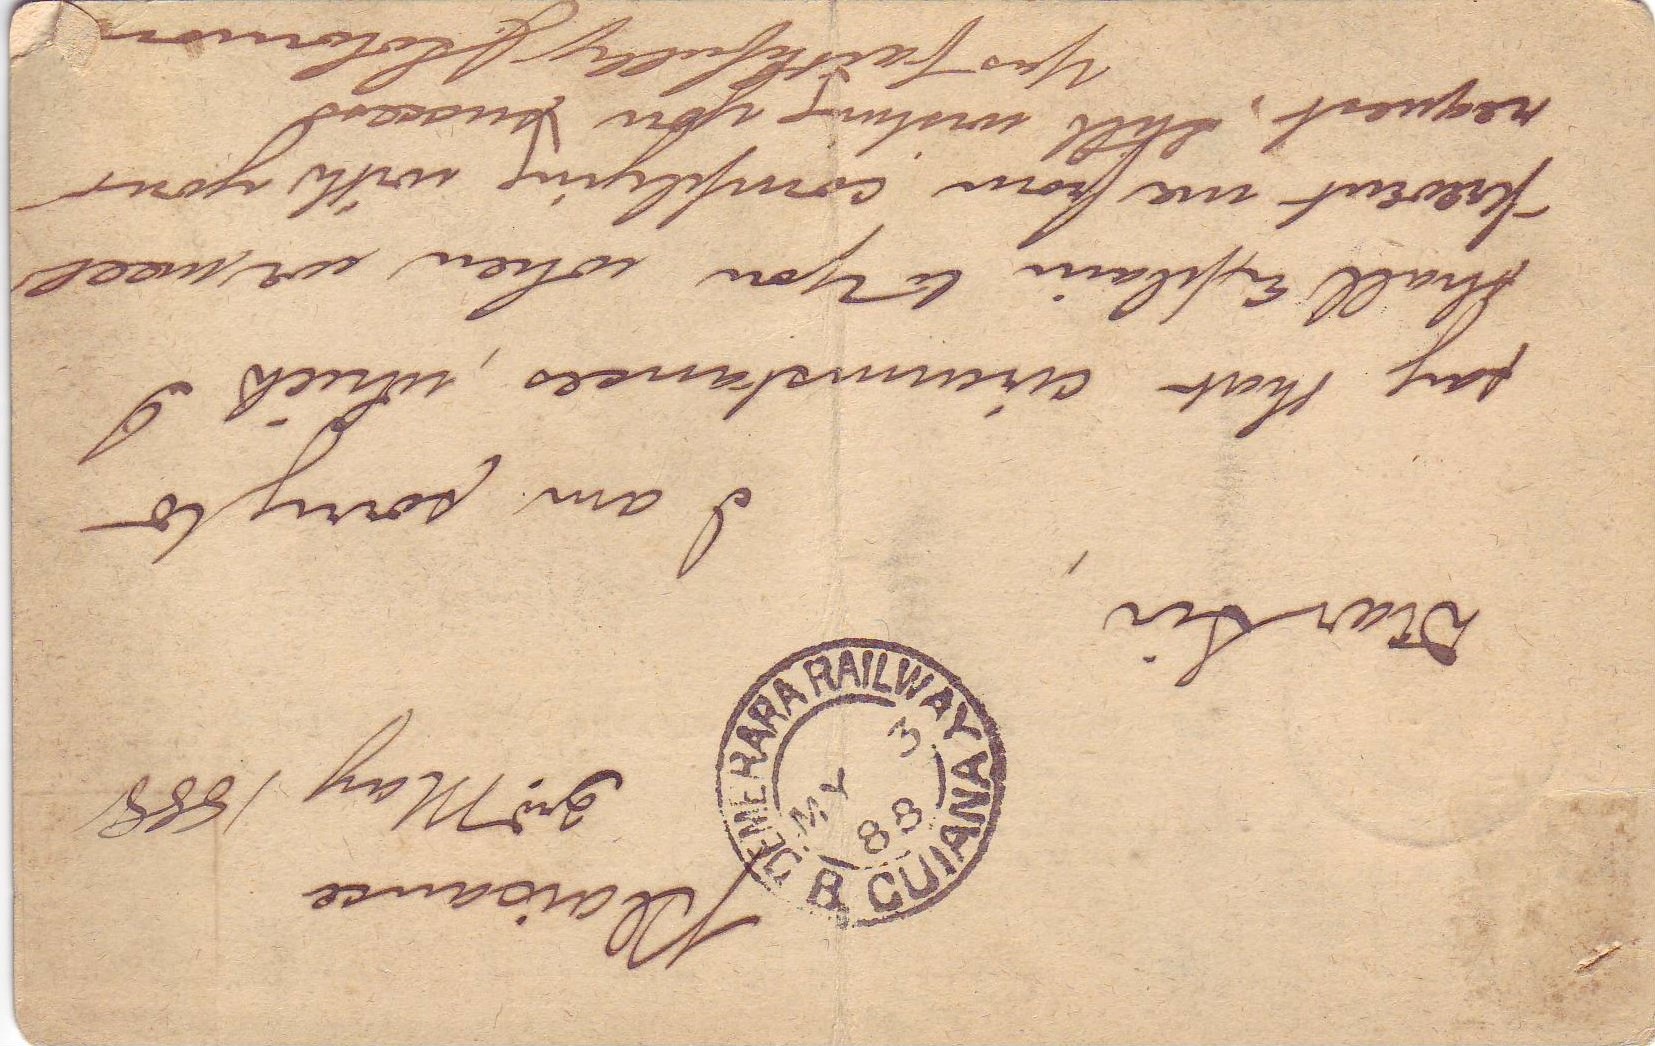 Plaisance
3rd May 1888
DEMERARA RAILWAY
B. GUIANA
MY 3
88
Dear Sir,
I am sorry to
say that circumstances, which I
shall Explain to you when we meet
prevent me from complying with your
request. Still wishing you success
Yrs faithfully J. Solomon